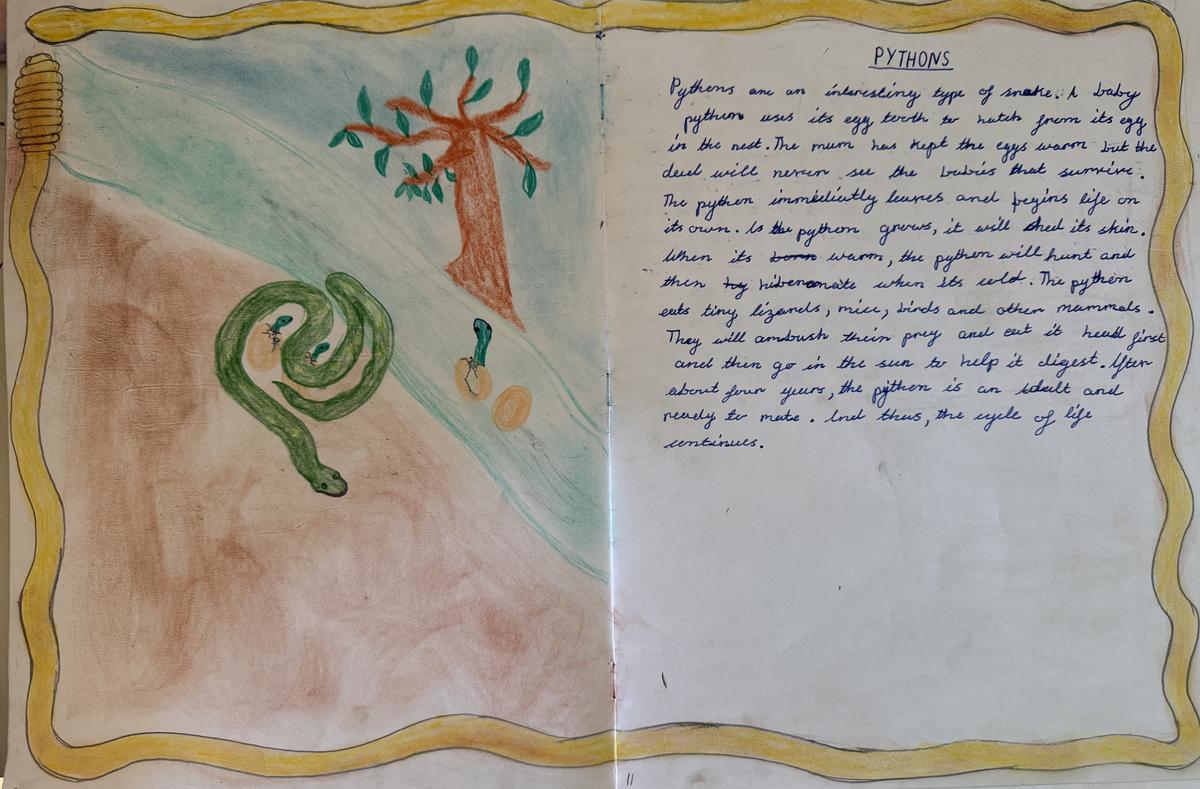 PYTHONS
Pythons are an interesting type of snake. A baby
python uses its egg tooth to hatch from its egg
in the nest. The mum has kept the eggs warm but the
dad will never see the babies that survive.
The python immediutly leaves and begins life on
its own. As the python grows, it will shed its skin.
When its born warm, the python will hunt and
then hy hibernate when its cold. The python
eats tiny lizards, mice, birds and other mammals.
They will ambush their prey and eat it head first
and then go in the sun to help it digest. After
about four years, the python is an adult and
ready to mate. And thus, the cycle of life
continues.
11